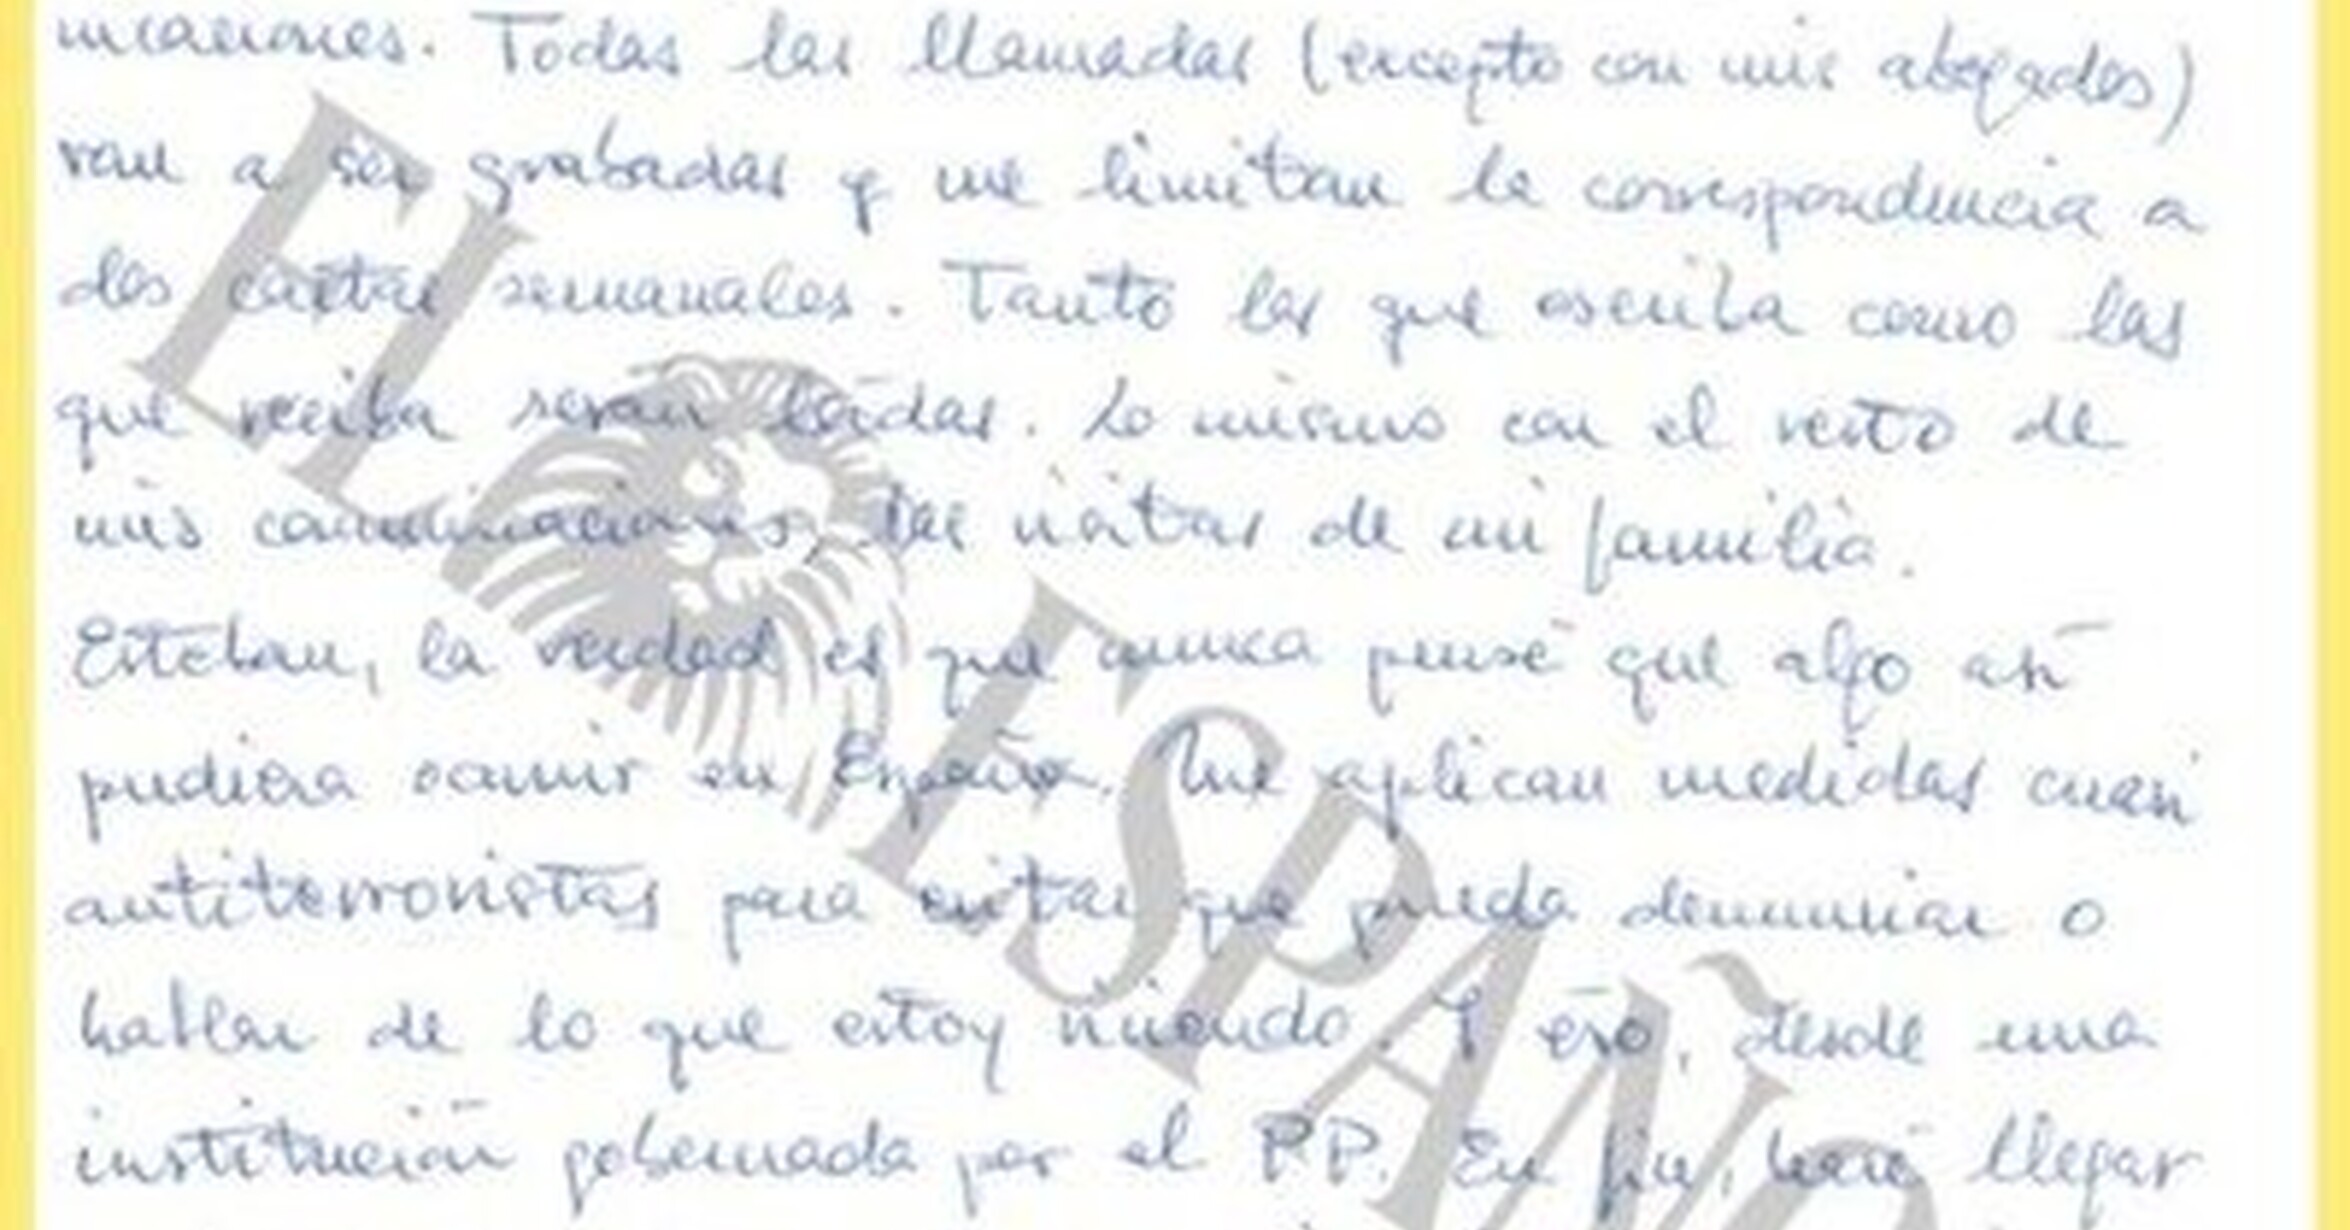 nicaciones. Todas las llamadas (excepto con mis abogados)
van a ser grabadas y me limitan la correspondencia a
dos cartas semanales. Tanto las que escriba como las
que reciba serán leídas. Lo mismo con el resto de
mis comunicaciones, las visitas de mi familia.
Esteban, la verdad es que nunca pensé que algo así
pudiera ocurrir en España. Me aplican medidas cuasi
antiterroristas para evitar que pueda denunciar o
hablar de lo que estoy viviendo. Y eso, desde una
institución gobernada por el P.P. En fin, haré llegar
EL ESPAÑO